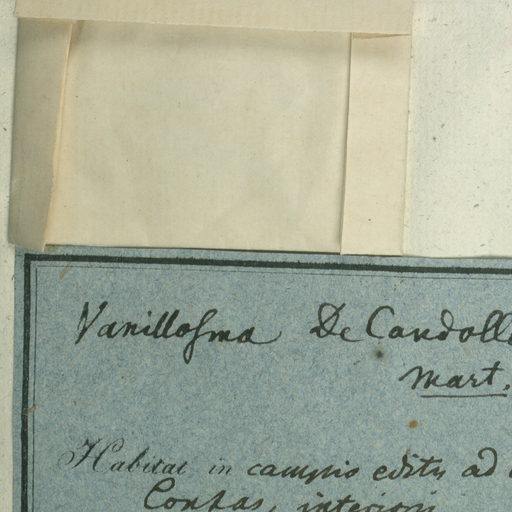 Vanillosma De Candoll
Mart.
Habitat in campis editis ad
Contas, interioris